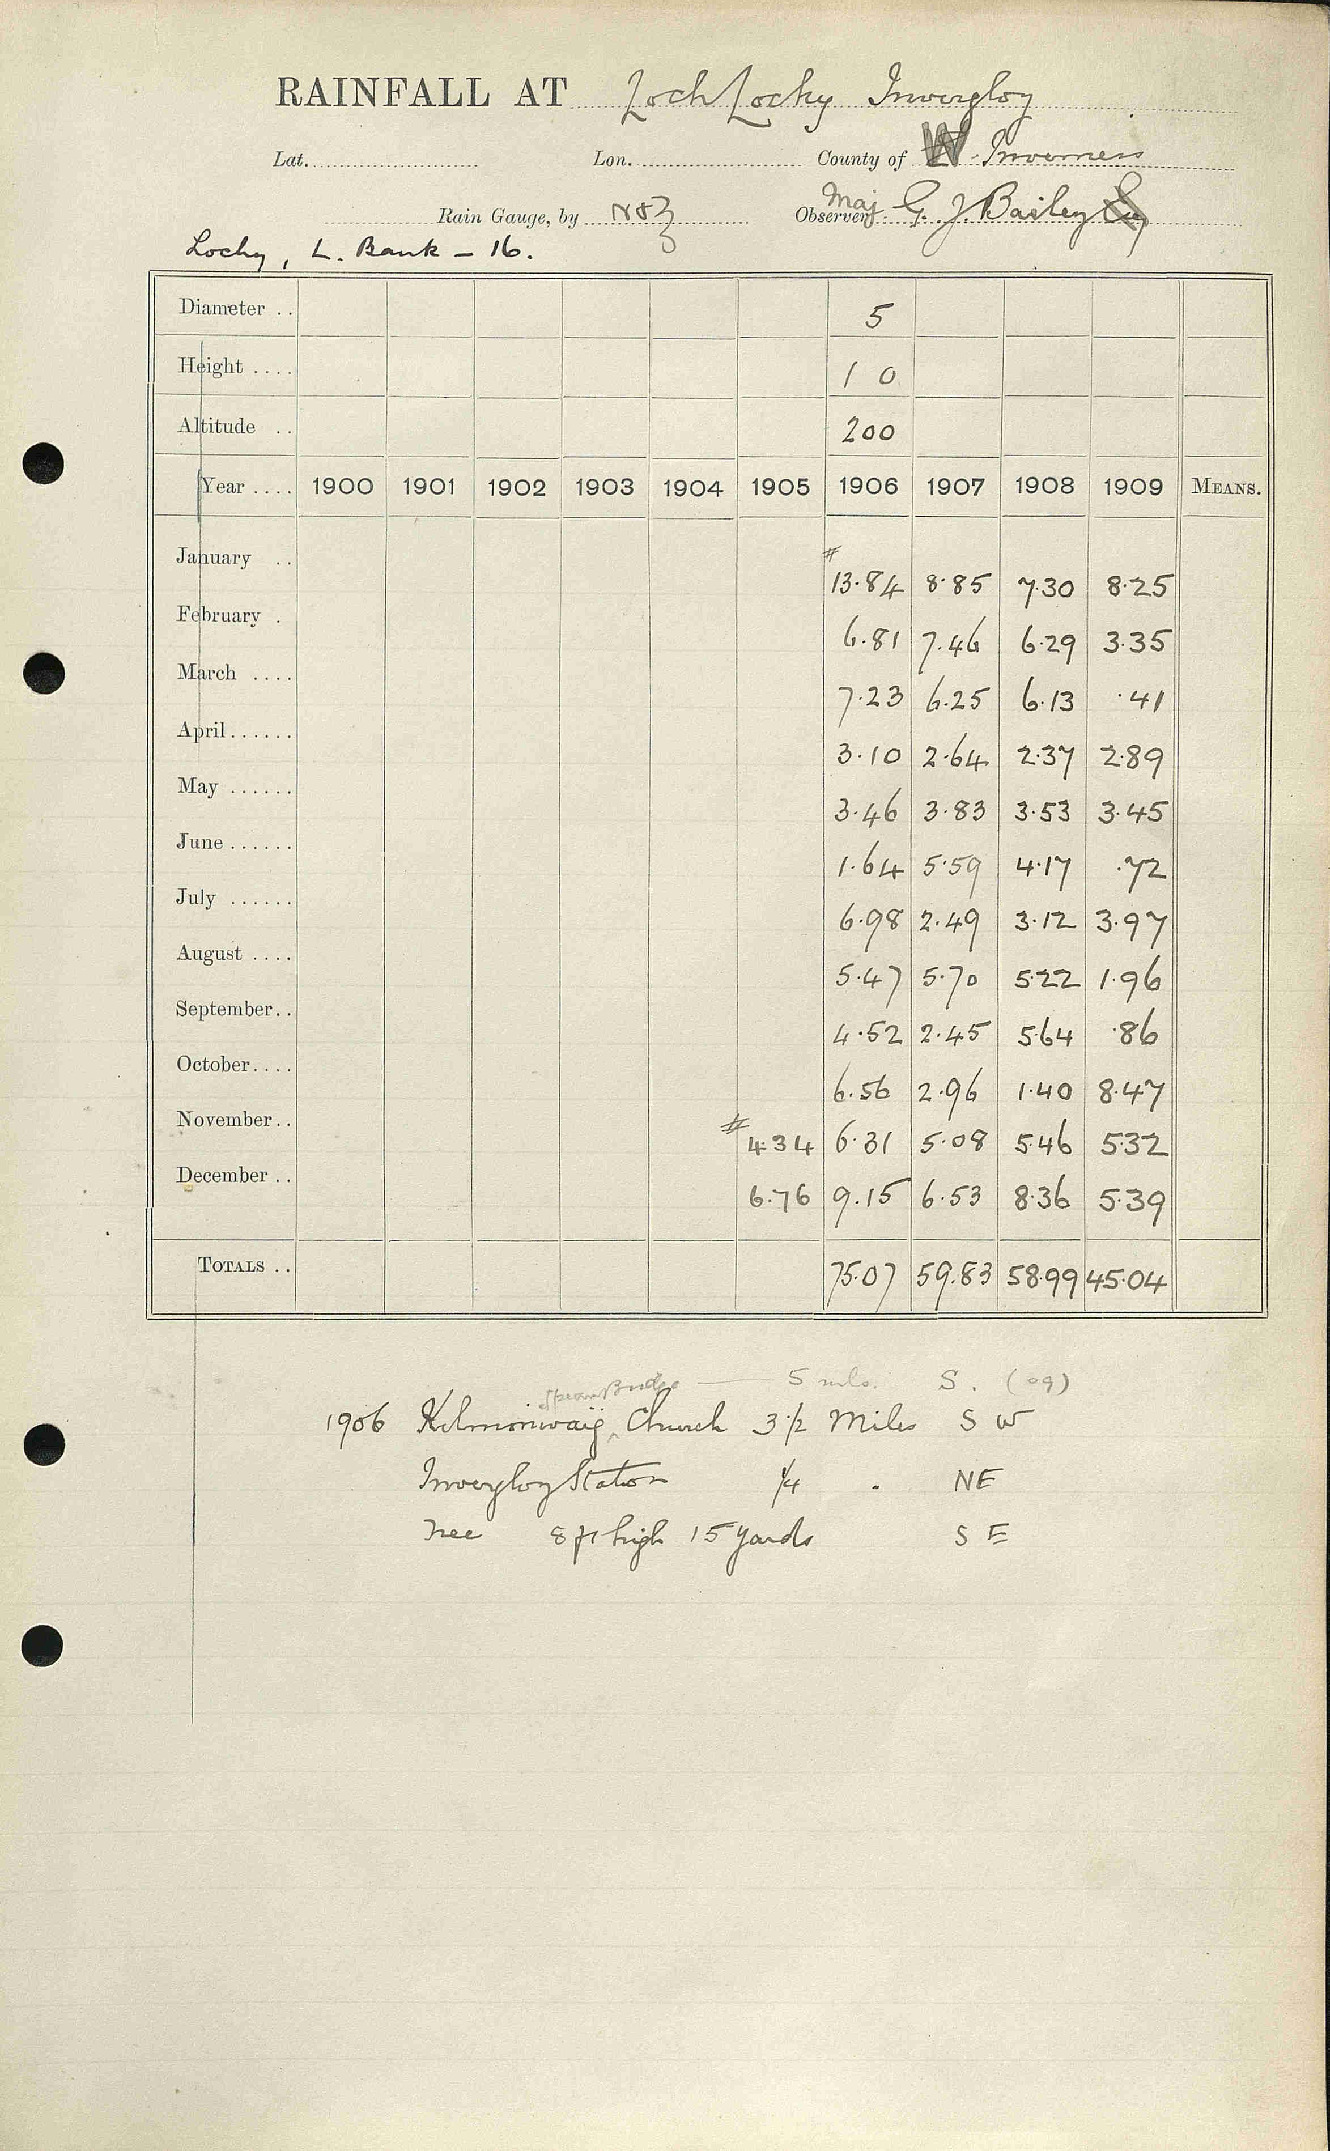 RAINFALL AT Loch Lochy Invergloy
Lat. Lon. County of W. Inverness
Rain Gauge, by N&Z Observer Maj. G. J. Bailey Esq
Lochy, L. Bank - 16.
Diameter .. 5
Height .... 1 0
Altitude .. 200
Year .... 1900 1901 1902 1903 1904 1905 1906 1907 1908 1909 MEANS.
January .. # 13.84 8.85 7.30 8.25
February . 6.81 7.46 6.29 3.35
March .... 7.23 6.25 6.13 .41
April...... 3.10 2.64 2.37 2.89
May ...... 3.46 3.83 3.53 3.45
June ...... 1.64 5.59 4.17 .72
July ...... 6.98 2.49 3.12 3.97
August .... 5.47 5.70 5.22 1.96
September.. 4.52 2.45 5.64 .86
October.... 6.56 2.96 1.40 8.47
November.. # 4.34 6.31 5.08 5.46 5.32
December .. 6.76 9.15 6.53 8.36 5.39
TOTALS .. 75.07 59.83 58.99 45.04
Spean Bridge — 5 mls. S. (09)
1906 Kilmonivaig Church 3 1/2 Miles S W
Invergloy Station 1/4 . NE
Tree 8 ft high 15 yards S E